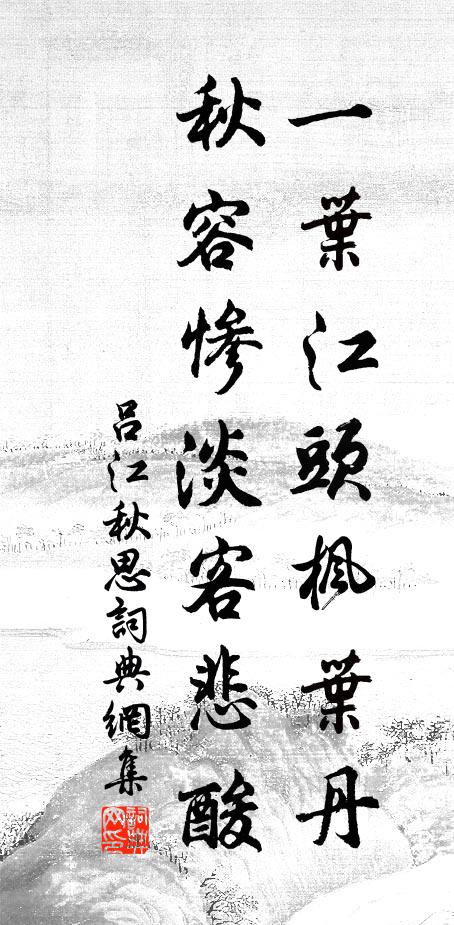 一葉江頭楓葉丹
秋容慘淡客悲酸
呂江秋思詞典網集